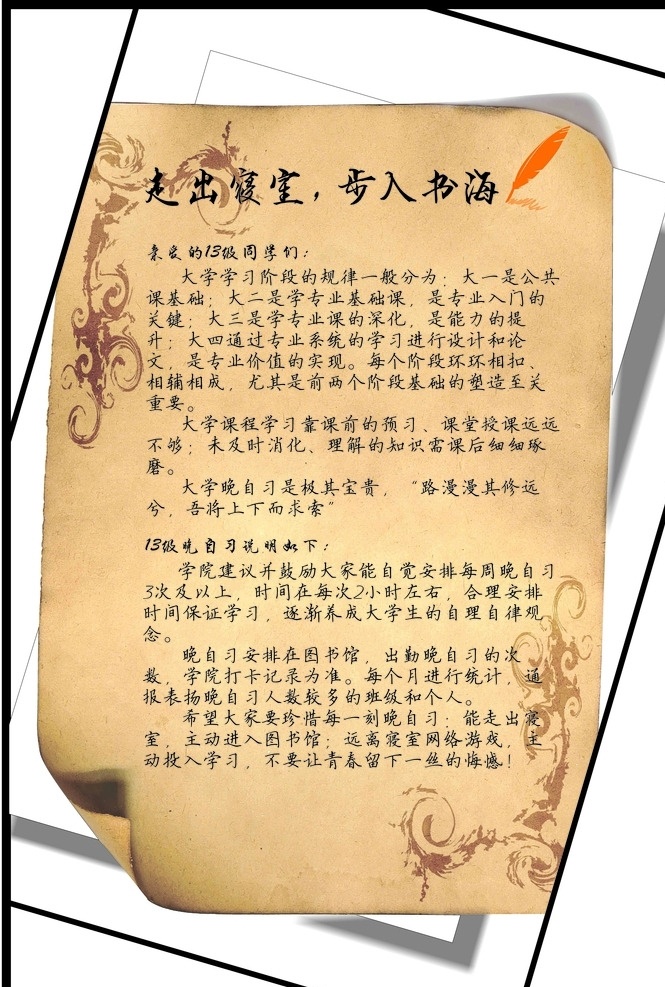 走出寝室，步入书海
亲爱的13级同学们：
大学学习阶段的规律一般分为：大一是公共
课基础；大二是学专业基础课，是专业入门的
关键；大三是学专业课的深化，是能力的提
升；大四通过专业系统的学习进行设计和论
文，是专业价值的实现。每个阶段环环相扣、
相辅相成，尤其是前两个阶段基础的塑造至关
重要。
大学课程学习靠课前的预习、课堂授课远远
不够；未及时消化、理解的知识需课后细细琢
磨。
大学晚自习是极其宝贵，“路漫漫其修远
兮，吾将上下而求索”
13级晚自习说明如下：
学院建议并鼓励大家能自觉安排每周晚自习
3次及以上，时间在每次2小时左右，合理安排
时间保证学习，逐渐养成大学生的自理自律观
念。
晚自习安排在图书馆，出勤晚自习的次
数，学院打卡记录为准。每个月进行统计，通
报表扬晚自习人数较多的班级和个人。
希望大家要珍惜每一刻晚自习：能走出寝
室，主动进入图书馆；远离寝室网络游戏，主
动投入学习，不要让青春留下一丝的悔憾！